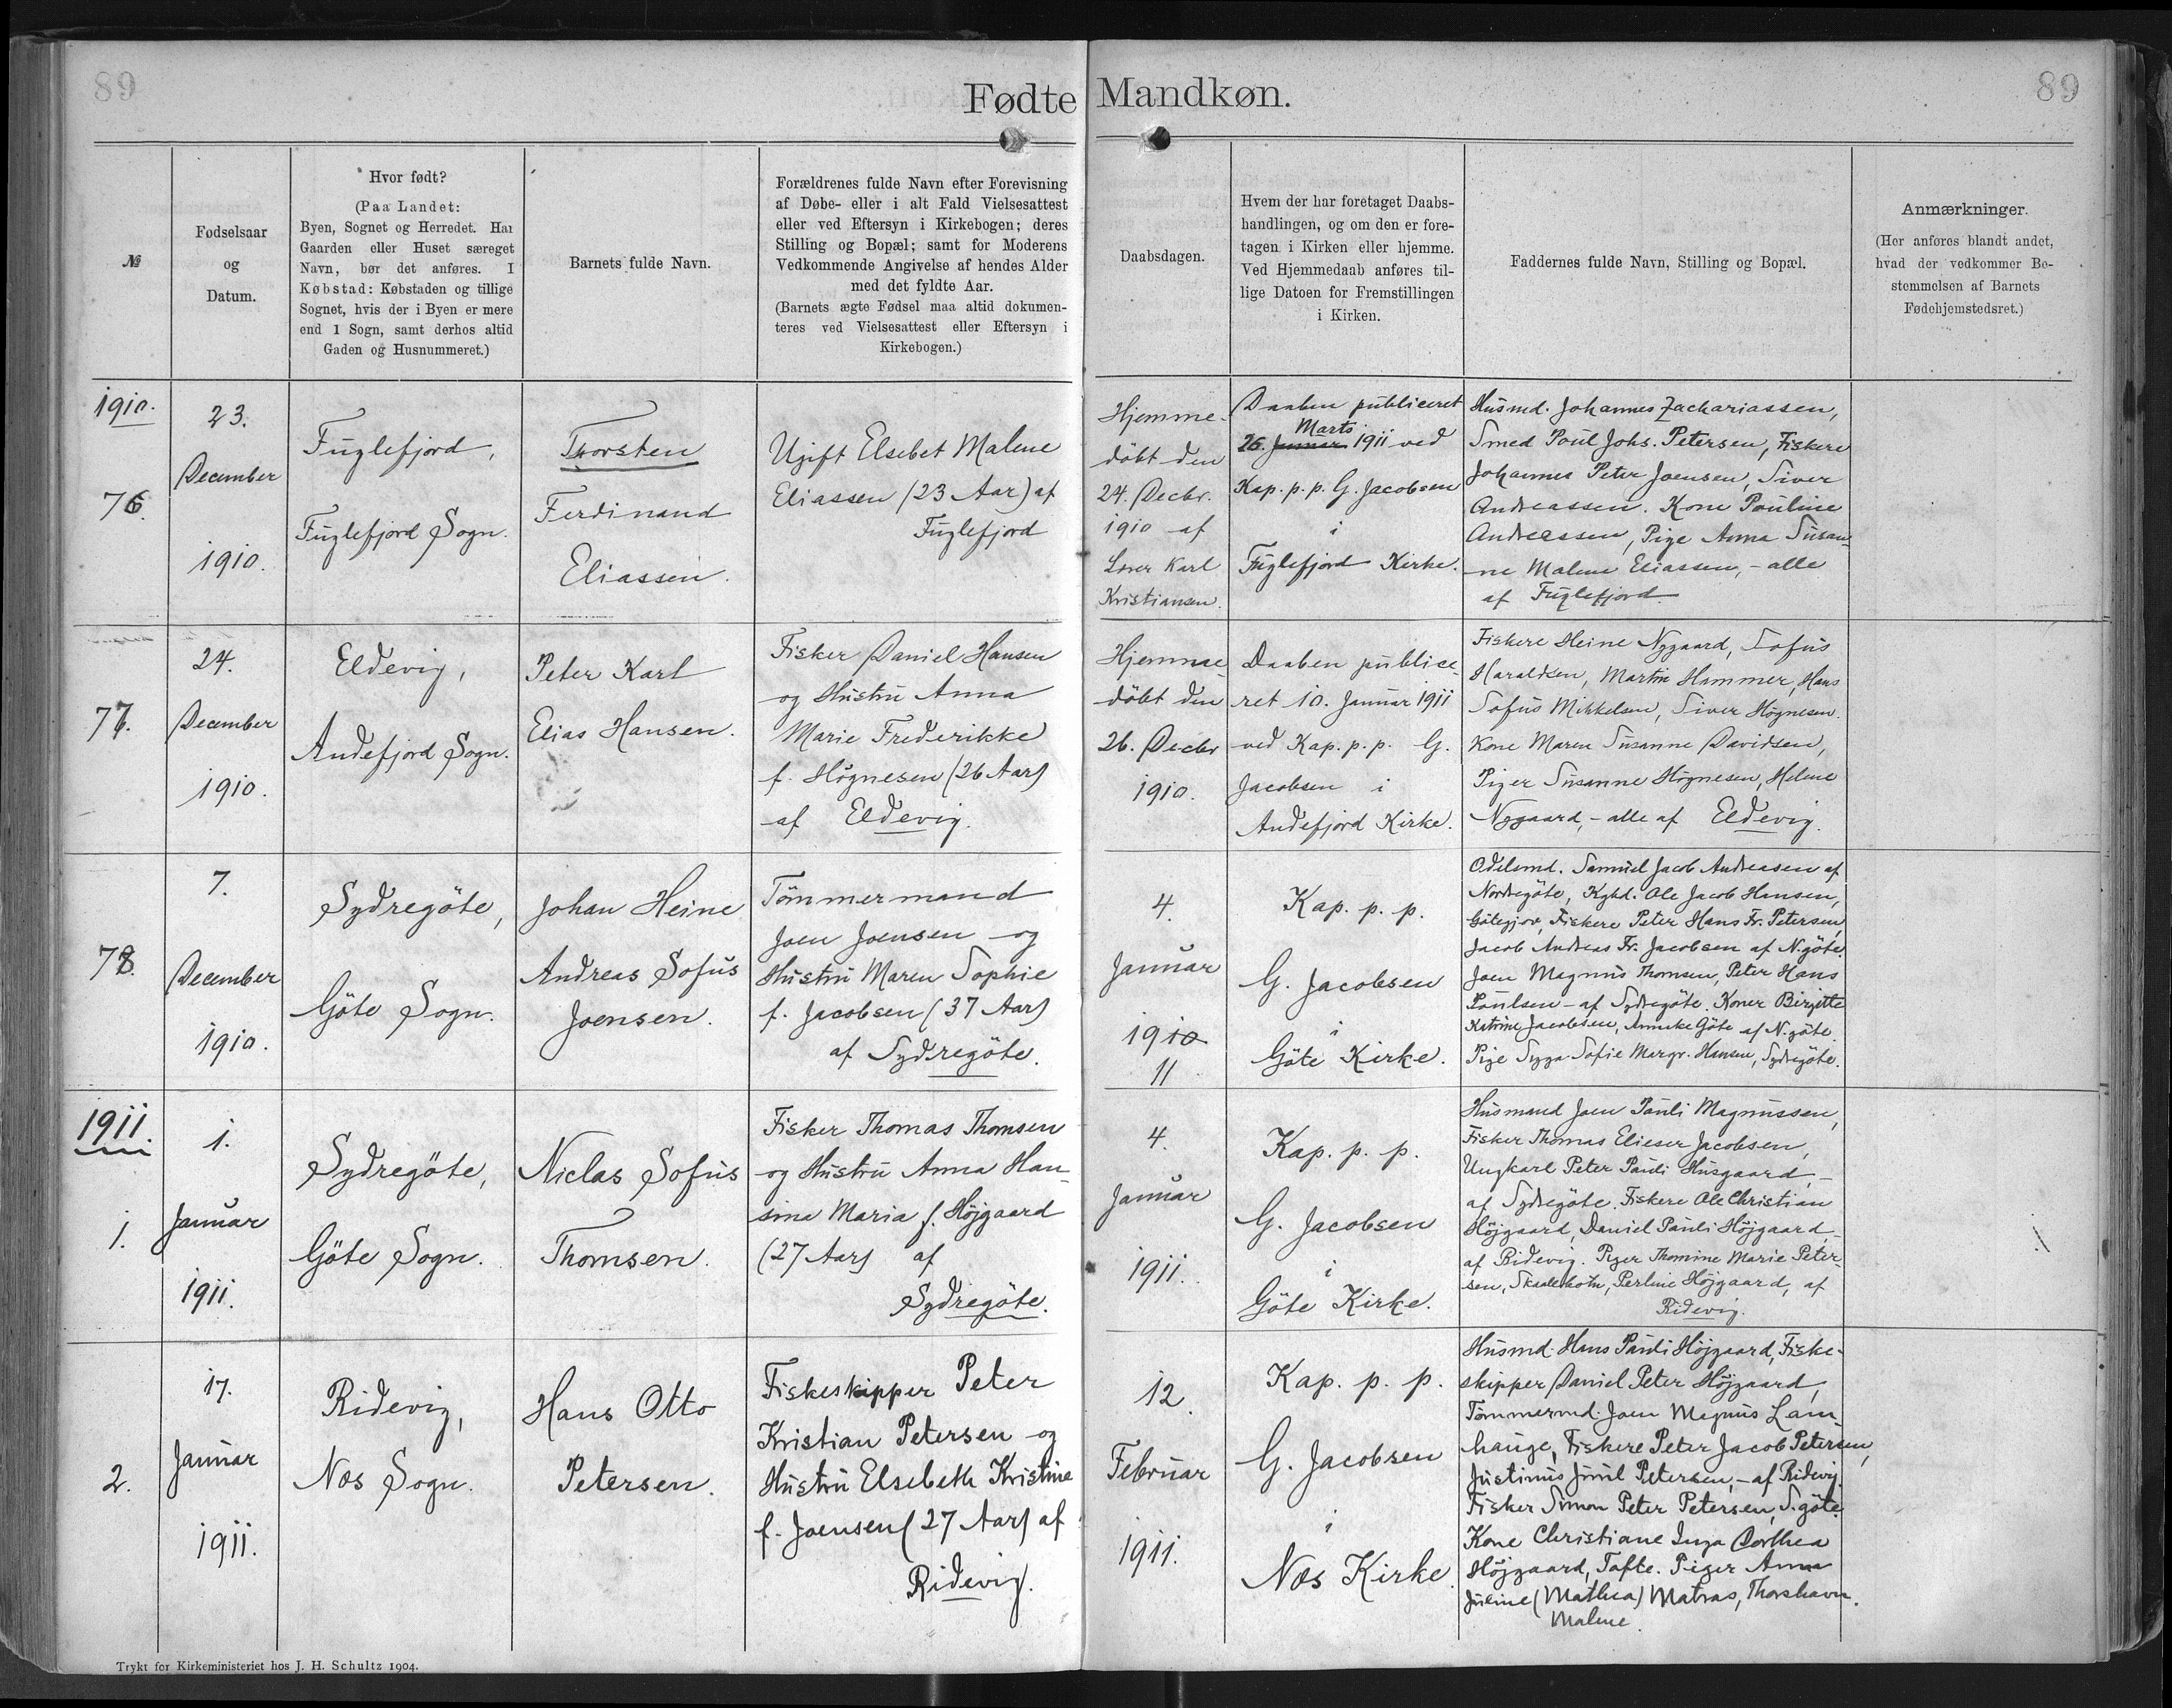 89
Fødte Mandkøn.
89
№
Fødselsaar
og
Datum.
Hvor født?
(Paa Landet:
Byen, Sognet og Herredet. Har
Gaarden eller Huset særeget
Navn, bør det anføres. I
Købstad: Købstaden og tillige
Sognet, hvis der i Byen er mere
end 1 Sogn, samt derhos altid
Gaden og Husnummeret.)
Barnets fulde Navn.
Forældrenes fulde Navn efter Forevisning
af Døbe- eller i alt Fald Vielsesattest
eller ved Eftersyn i Kirkebogen; deres
Stilling og Bopæl; samt for Moderens
Vedkommende Angivelse af hendes Alder
med det fyldte Aar.
(Barnets ægte Fødsel maa altid dokumen-
teres ved Vielsesattest eller Eftersyn i
Kirkebogen.)
Daabsdagen.
Hvem der har foretaget Daabs-
handlingen, og om den er fore-
tagen i Kirken eller hjemme.
Ved Hjemmedaab anføres til-
lige Datoen for Fremstillingen
i Kirken.
Faddernes fulde Navn, Stilling og Bopæl.
Anmærkninger.
(Her anføres blandt andet,
hvad der vedkommer Be-
stemmelsen af Barnets
Fødehjemstedsret.)
1910.
76.
23.
December
1910.
Fuglefjord,
Fuglefjord Sogn.
Thorsten
Ferdinand
Eliassen.
Ugift Elsebet Malene
Eliassen (23 Aar) af
Fuglefjord
Hjemme-
döbt den
24. Decbr.
1910 af
Lærer Karl
Kristiansen.
Daaben publiceret
Marts
26. Januar 1911 ved
Kap. p. p. G. Jacobsen
i
Fuglefjord Kirke.
Husmd. Johannes Zachariassen,
Smed Poul Johs. Petersen, Fiskere
Johannes Peter Joensen, Siver
Andreassen. Kone Pouline
Andreassen, Pige Anna Susan-
ne Malene Eliassen, - alle
af Fuglefjord.
77.
24.
December
1910.
Eldevig,
Andefjord Sogn.
Peter Karl
Elias Hansen.
Fisker Daniel Hansen
og Hustru Anna
Marie Frederikke
f. Högnesen (26 Aar)
af Eldevig.
Hjemme
döbt den
26. Decbr
1910.
Daaben publice-
ret 10. Januar 1911
ved Kap. p. p. G.
Jacobsen i
Andefjord Kirke.
Fiskere Heine Nygaard, Sofus
Haraldsen, Martin Hammer, Hans
Sofus Mikkelsen, Siver Högnesen.
Kone Maren Susanne Davidsen,
Piger Susanne Högnesen, Helene
Nygaard, - alle af Eldevig.
78.
7.
December
1910.
Sydregöte,
Göte Sogn.
Johan Heine
Andreas Sofus
Joensen.
Tömmermand
Joen Joensen og
Hustru Maren Sophie
f. Jacobsen (37 Aar)
af Sydregöte.
4.
Januar
1910
11
Kap. p. p.
G. Jacobsen
i
Göte Kirke.
Odelsmd. Samuel Jacob Andreasen af
Nordregöte, Kghd. Ole Jacob Hansen,
Götegjov, Fiskere Peter Hans Fr. Petersen,
Jacob Andreas Fr. Jacobsen af N.göte.
Joen Magnus Thomsen, Peter Hans
Poulsen - af Sydregöte. Koner Birgitte
Katrine Jacobsen, Anneke Göte af N.göte.
Pige Sofie Margr. Hansen, Sydregöte.
1911.
1.
1.
Januar
1911.
Sydregöte,
Göte Sogn.
Niclas Sofus
Thomsen.
Fisker Thomas Thomsen
og Hustru Anna Han-
sina Maria f. Höjgaard
(27 Aar) af
Sydregöte.
4.
Januar
1911.
Kap. p. p.
G. Jacobsen
i
Göte Kirke.
Husmand Joen Pauli Magnussen,
Fisker Thomas Elieser Jacobsen,
Ungkarl Peter Pauli Husgaard, -
af Sydregöte. Fiskere Ole Christian
Höjgaard, Daniel Pauli Höjgaard, -
af Ridevig. Piger Thomine Marie Peter-
sen, Perline Höjgaard, af
Ridevig.
2.
17.
Januar
1911.
Ridevig,
Næs Sogn.
Hans Otto
Petersen.
Fiskeskipper Peter
Kristian Petersen og
Hustru Elsebeth Kristine
f. Joensen (27 Aar) af
Ridevig.
12.
Februar
1911.
Kap. p. p.
G. Jacobsen
i
Næs Kirke.
Husmd. Hans Pauli Höjgaard, Fiske-
skipper Daniel Peter Höjgaard,
Tömmermd. Joen Magnus Lam-
hauge, Fiskere Peter Jacob Petersen,
Justinus Juul Petersen, - af Ridevig.
Fisker Simon Peter Petersen, S.göte.
Kone Christiane Inga Dorthea
Höjgaard, Tofte. Piger Anna
Juline (Mathea) Matras, Thorshavn.
Malene.
Trykt for Kirkeministeriet hos J. H. Schultz 1904.